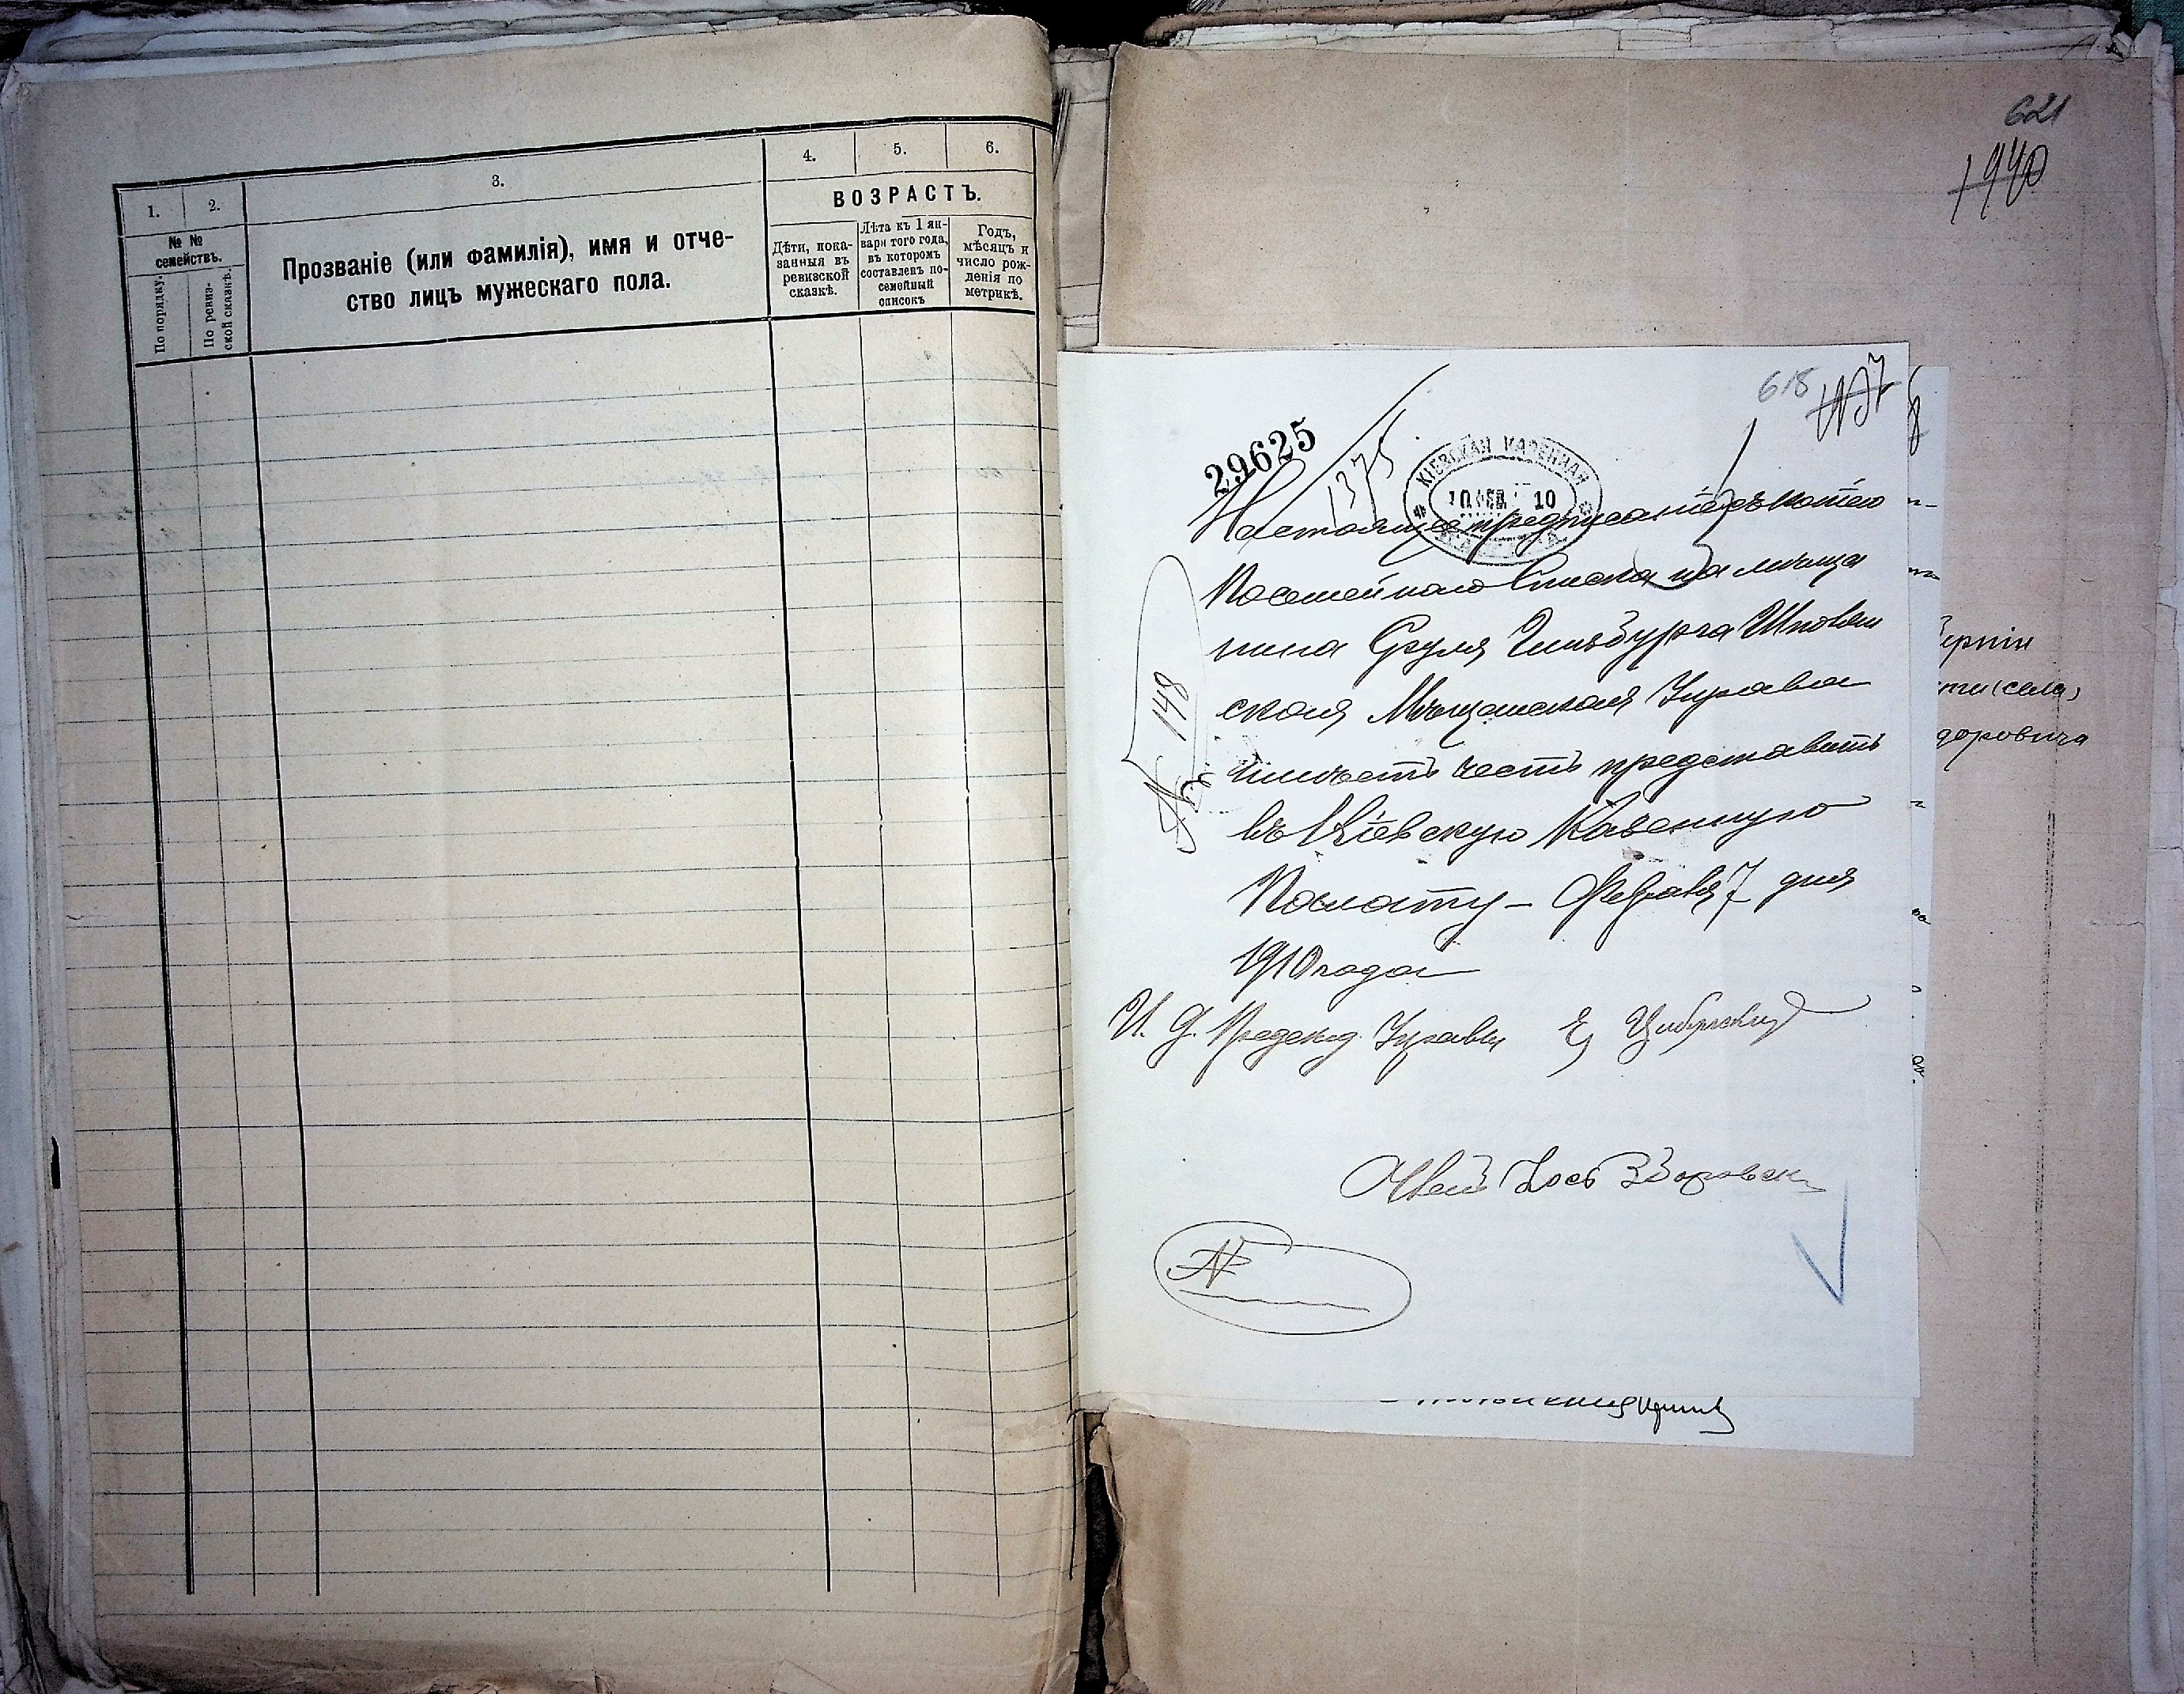 1.
2.
3.
4.
5.
6.
№ №
семействъ.
По порядку.
По ревиз-
ской сказкѣ.
Прозваніе (или фамилія), имя и отче-
ство лицъ мужескаго пола.
ВОЗРАСТЪ.
Дѣти, пока-
занныя въ
ревизской
сказкѣ.
Лѣта къ 1 ян-
варя того года,
въ которомъ
составленъ по-
семейный
списокъ
Годъ,
мѣсяцъ и
число рож-
денія по
метрикѣ.
621
1940
618
29625
1375
КІЕВСКАЯ КАЗЕННАЯ
10 ФЕВ. 10
Настоящее предписаніе съ копіею
Посемейнаго Списка на мѣща
нина Сруля Гинзбурга Шполян
ская Мѣщанская Управа
имѣетъ честь представить
въ Кіевскую Казенную
Палату – Февраля 7 дня
1910 года
№ 148
И. д. Предсид. Управы
№
ерніи
ти (села)
доровича